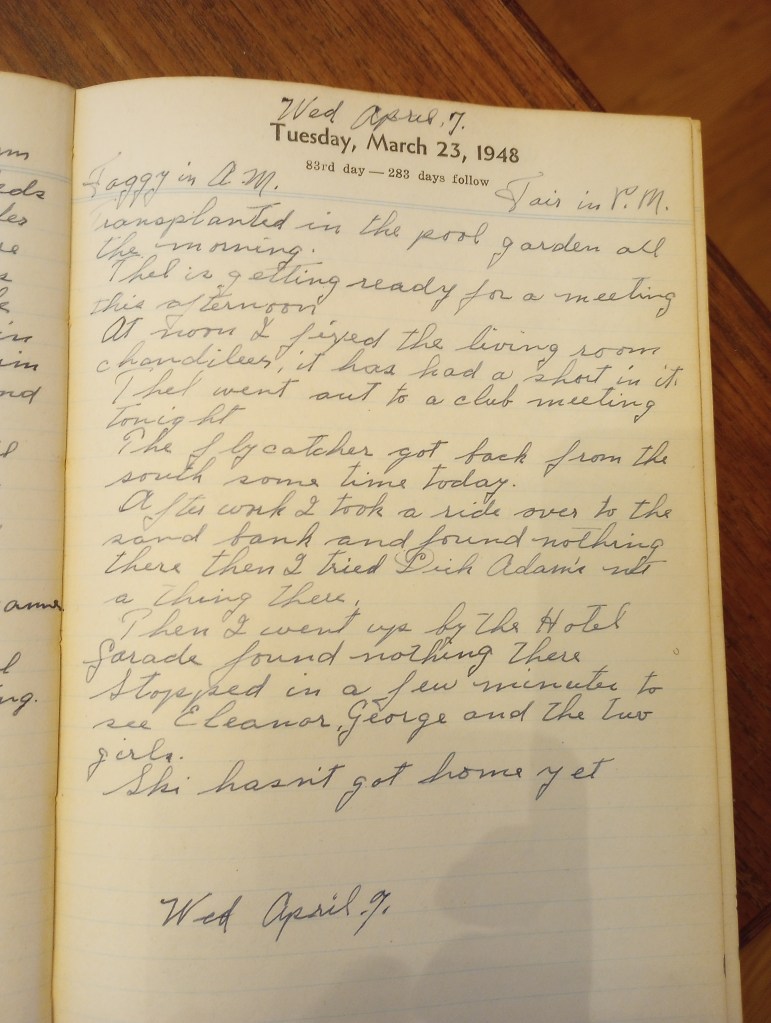 Wed April. 7.
Tuesday, March 23, 1948
83rd day — 283 days follow
Foggy in A.M. Fair in P.M.
Transplanted in the pool garden all
the morning.
Thel is getting ready for a meeting
this afternoon
At noon I fixed the living room
chandileer, it has had a short in it.
Thel went out to a club meeting
tonight
The flycatcher got back from the
south some time today.
After work I took a ride over to the
sand bank and found nothing
there then I tried Dick Adam's not
a thing there.
Then I went up by the Hotel
Garade found nothing there
Stopped in a few minutes to
see Eleanor, George and the two
girls.
Ski hasn't got home yet
Wed April. 7.